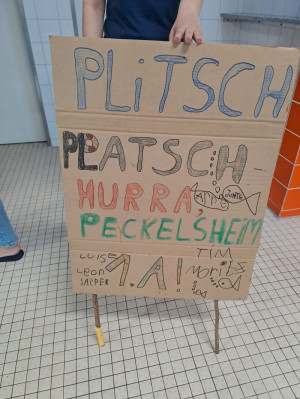 PLiTSCH
PLATSCH
HURRA,
PECKELSHEIM
LUISE
LEON
JASPER
1.A!
TIM
MORITS